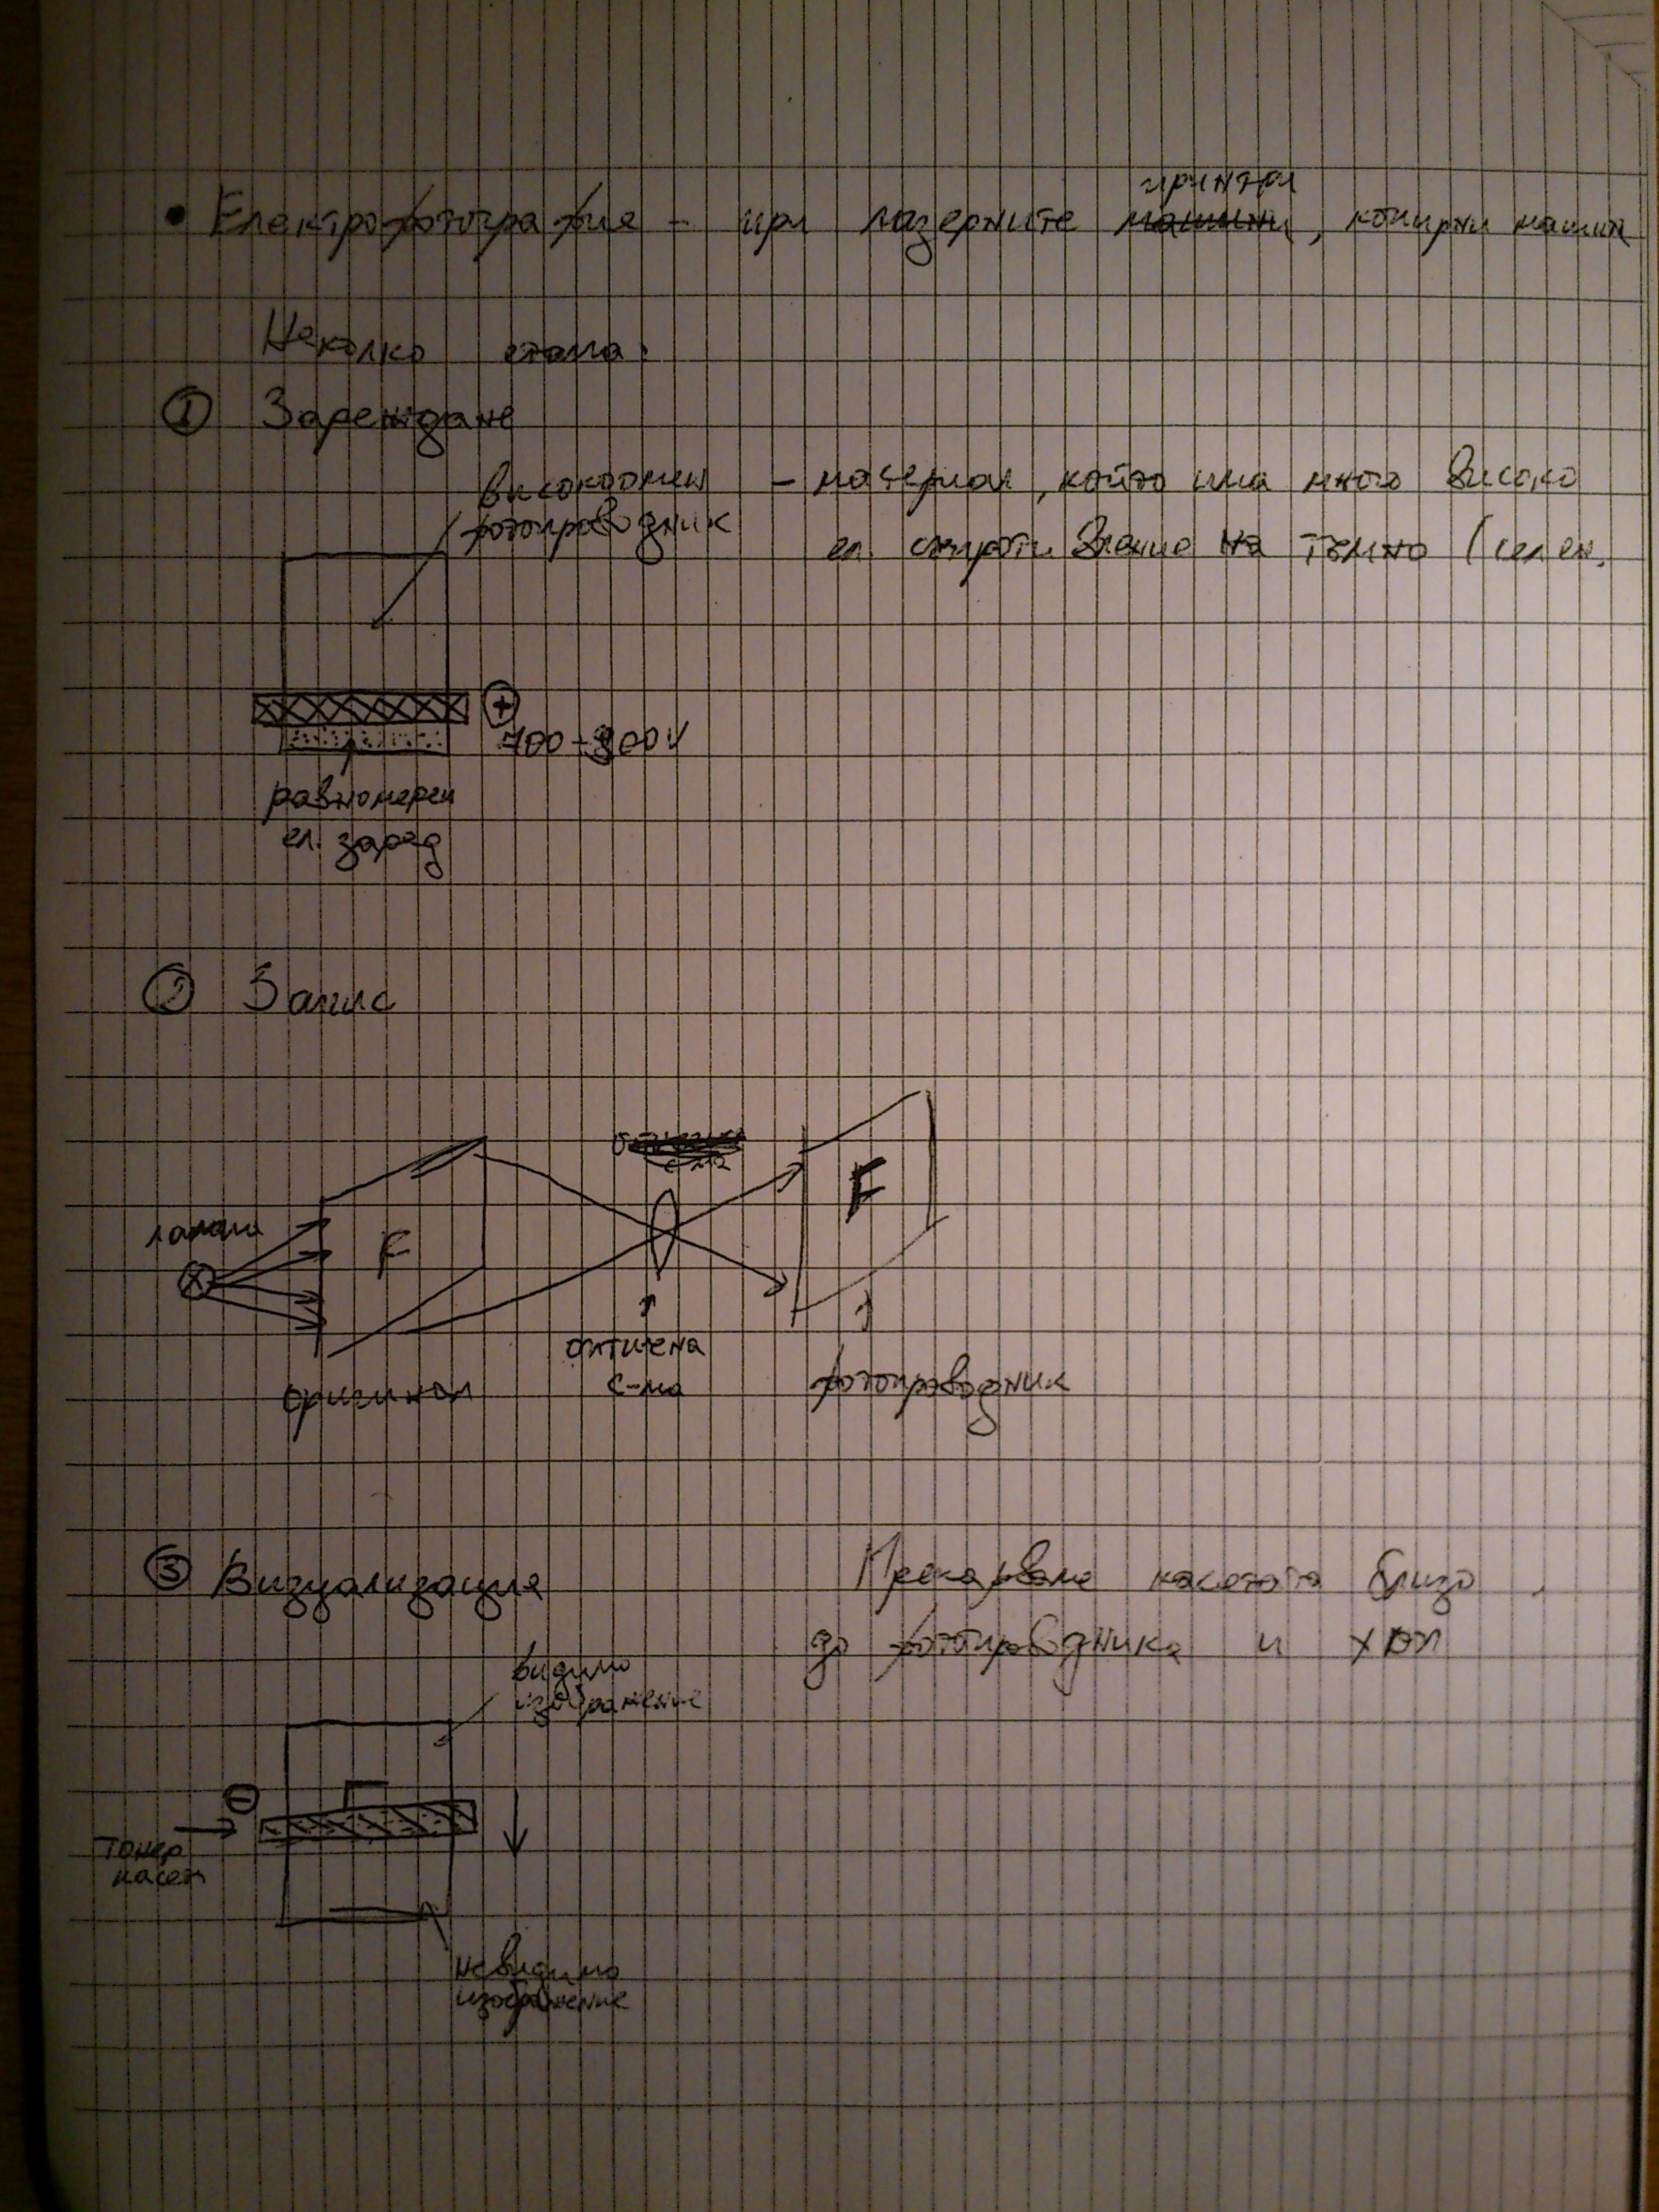 • Електрофотография - при лазерните принтри, копирни машин
Няколко етапа:
① Зареждане
високоомен - материал, който има много високо
фотопроводник ел. съпротивление на тъмно (селен.
+
700-800V
равномерен
ел. заряд
② Запис
лампа
F
F
оптична
с-ма
оригинал
фотопроводник
③ Визуализация
Прекарваме касетата близо
до фотопроводника и хоп
видимо
изображение
-
тонер
касет
невидимо
изображение